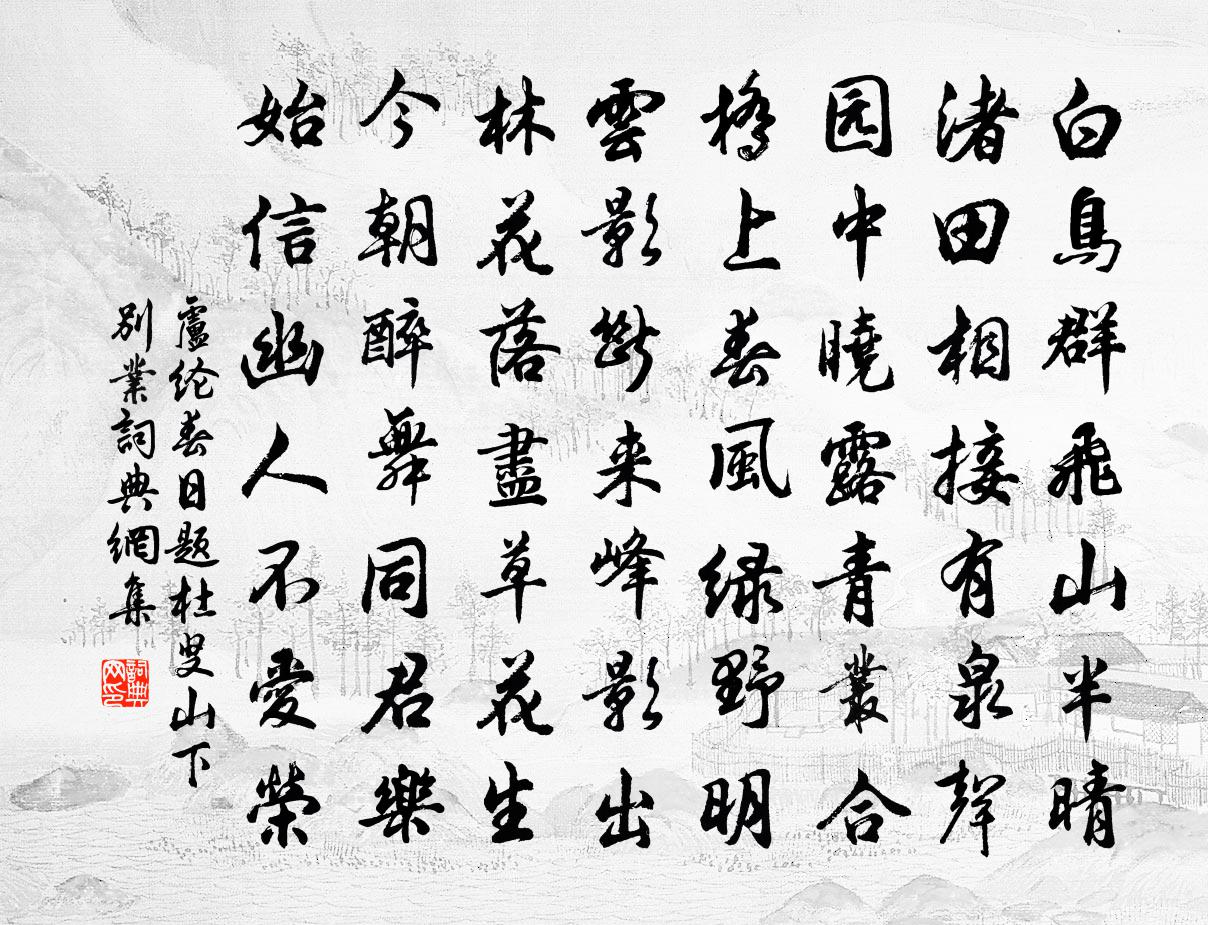 白鳥群飛山半晴
渚田相接有泉聲
园中曉露青叢合
橋上春風绿野明
雲影斷来峰影出
林花落盡草花生
今朝醉舞同君樂
始信幽人不愛榮
盧纶春日题杜叟山下
别業詞典網集
詞典
网印